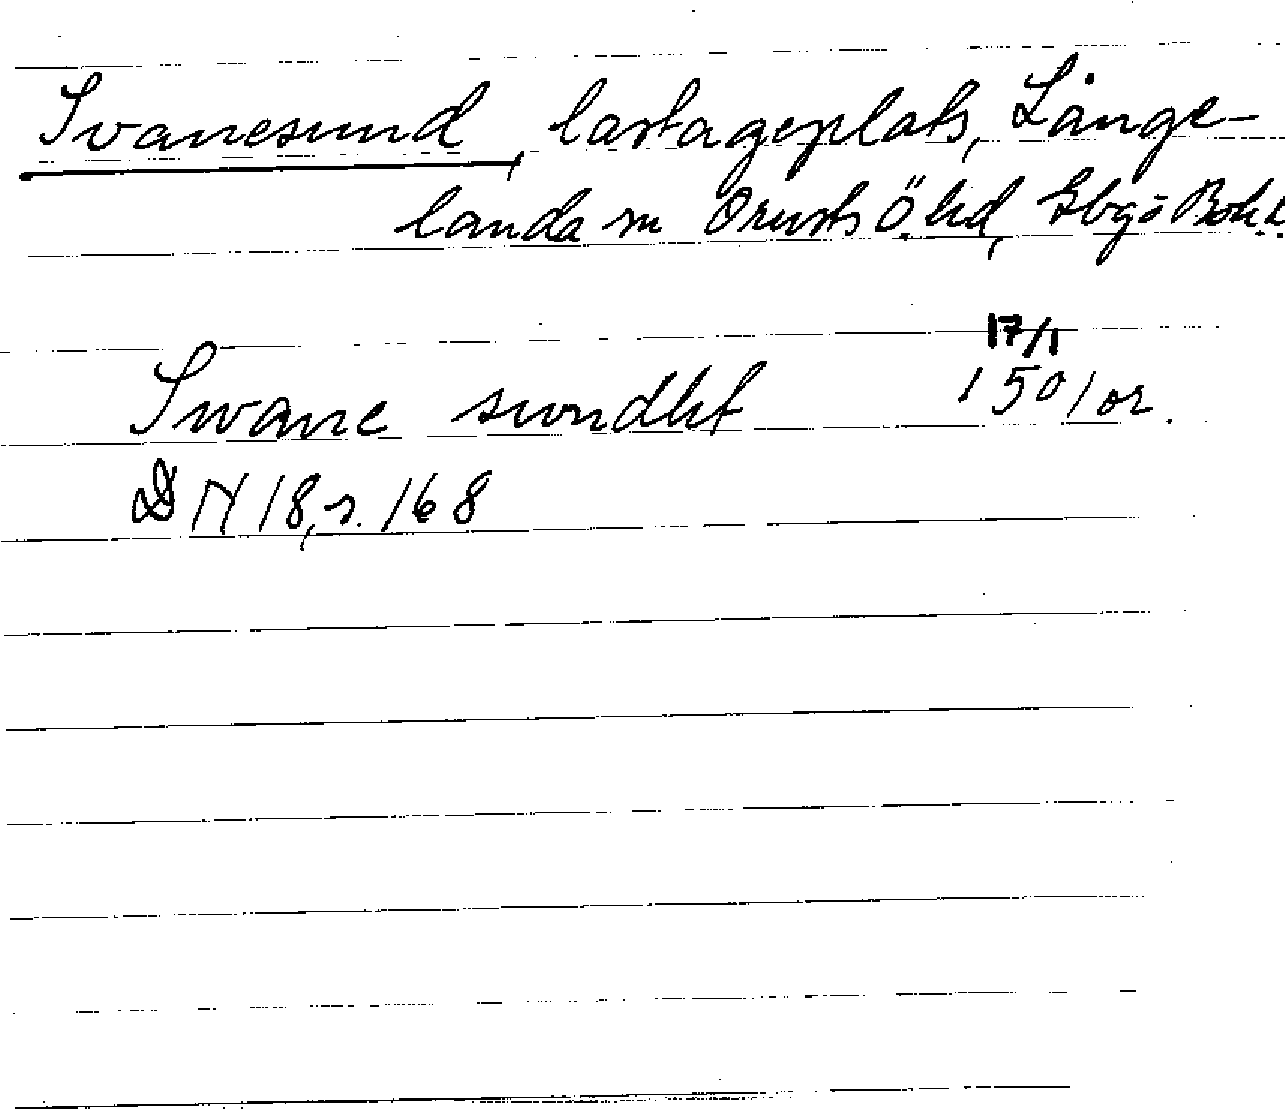 Svanesund, lastageplats, Långe-
landa sn Orusts Ö. hd, Gbgs o Boh. l.
17/1
Swane swndht 1501 or.
DN 18, s. 168